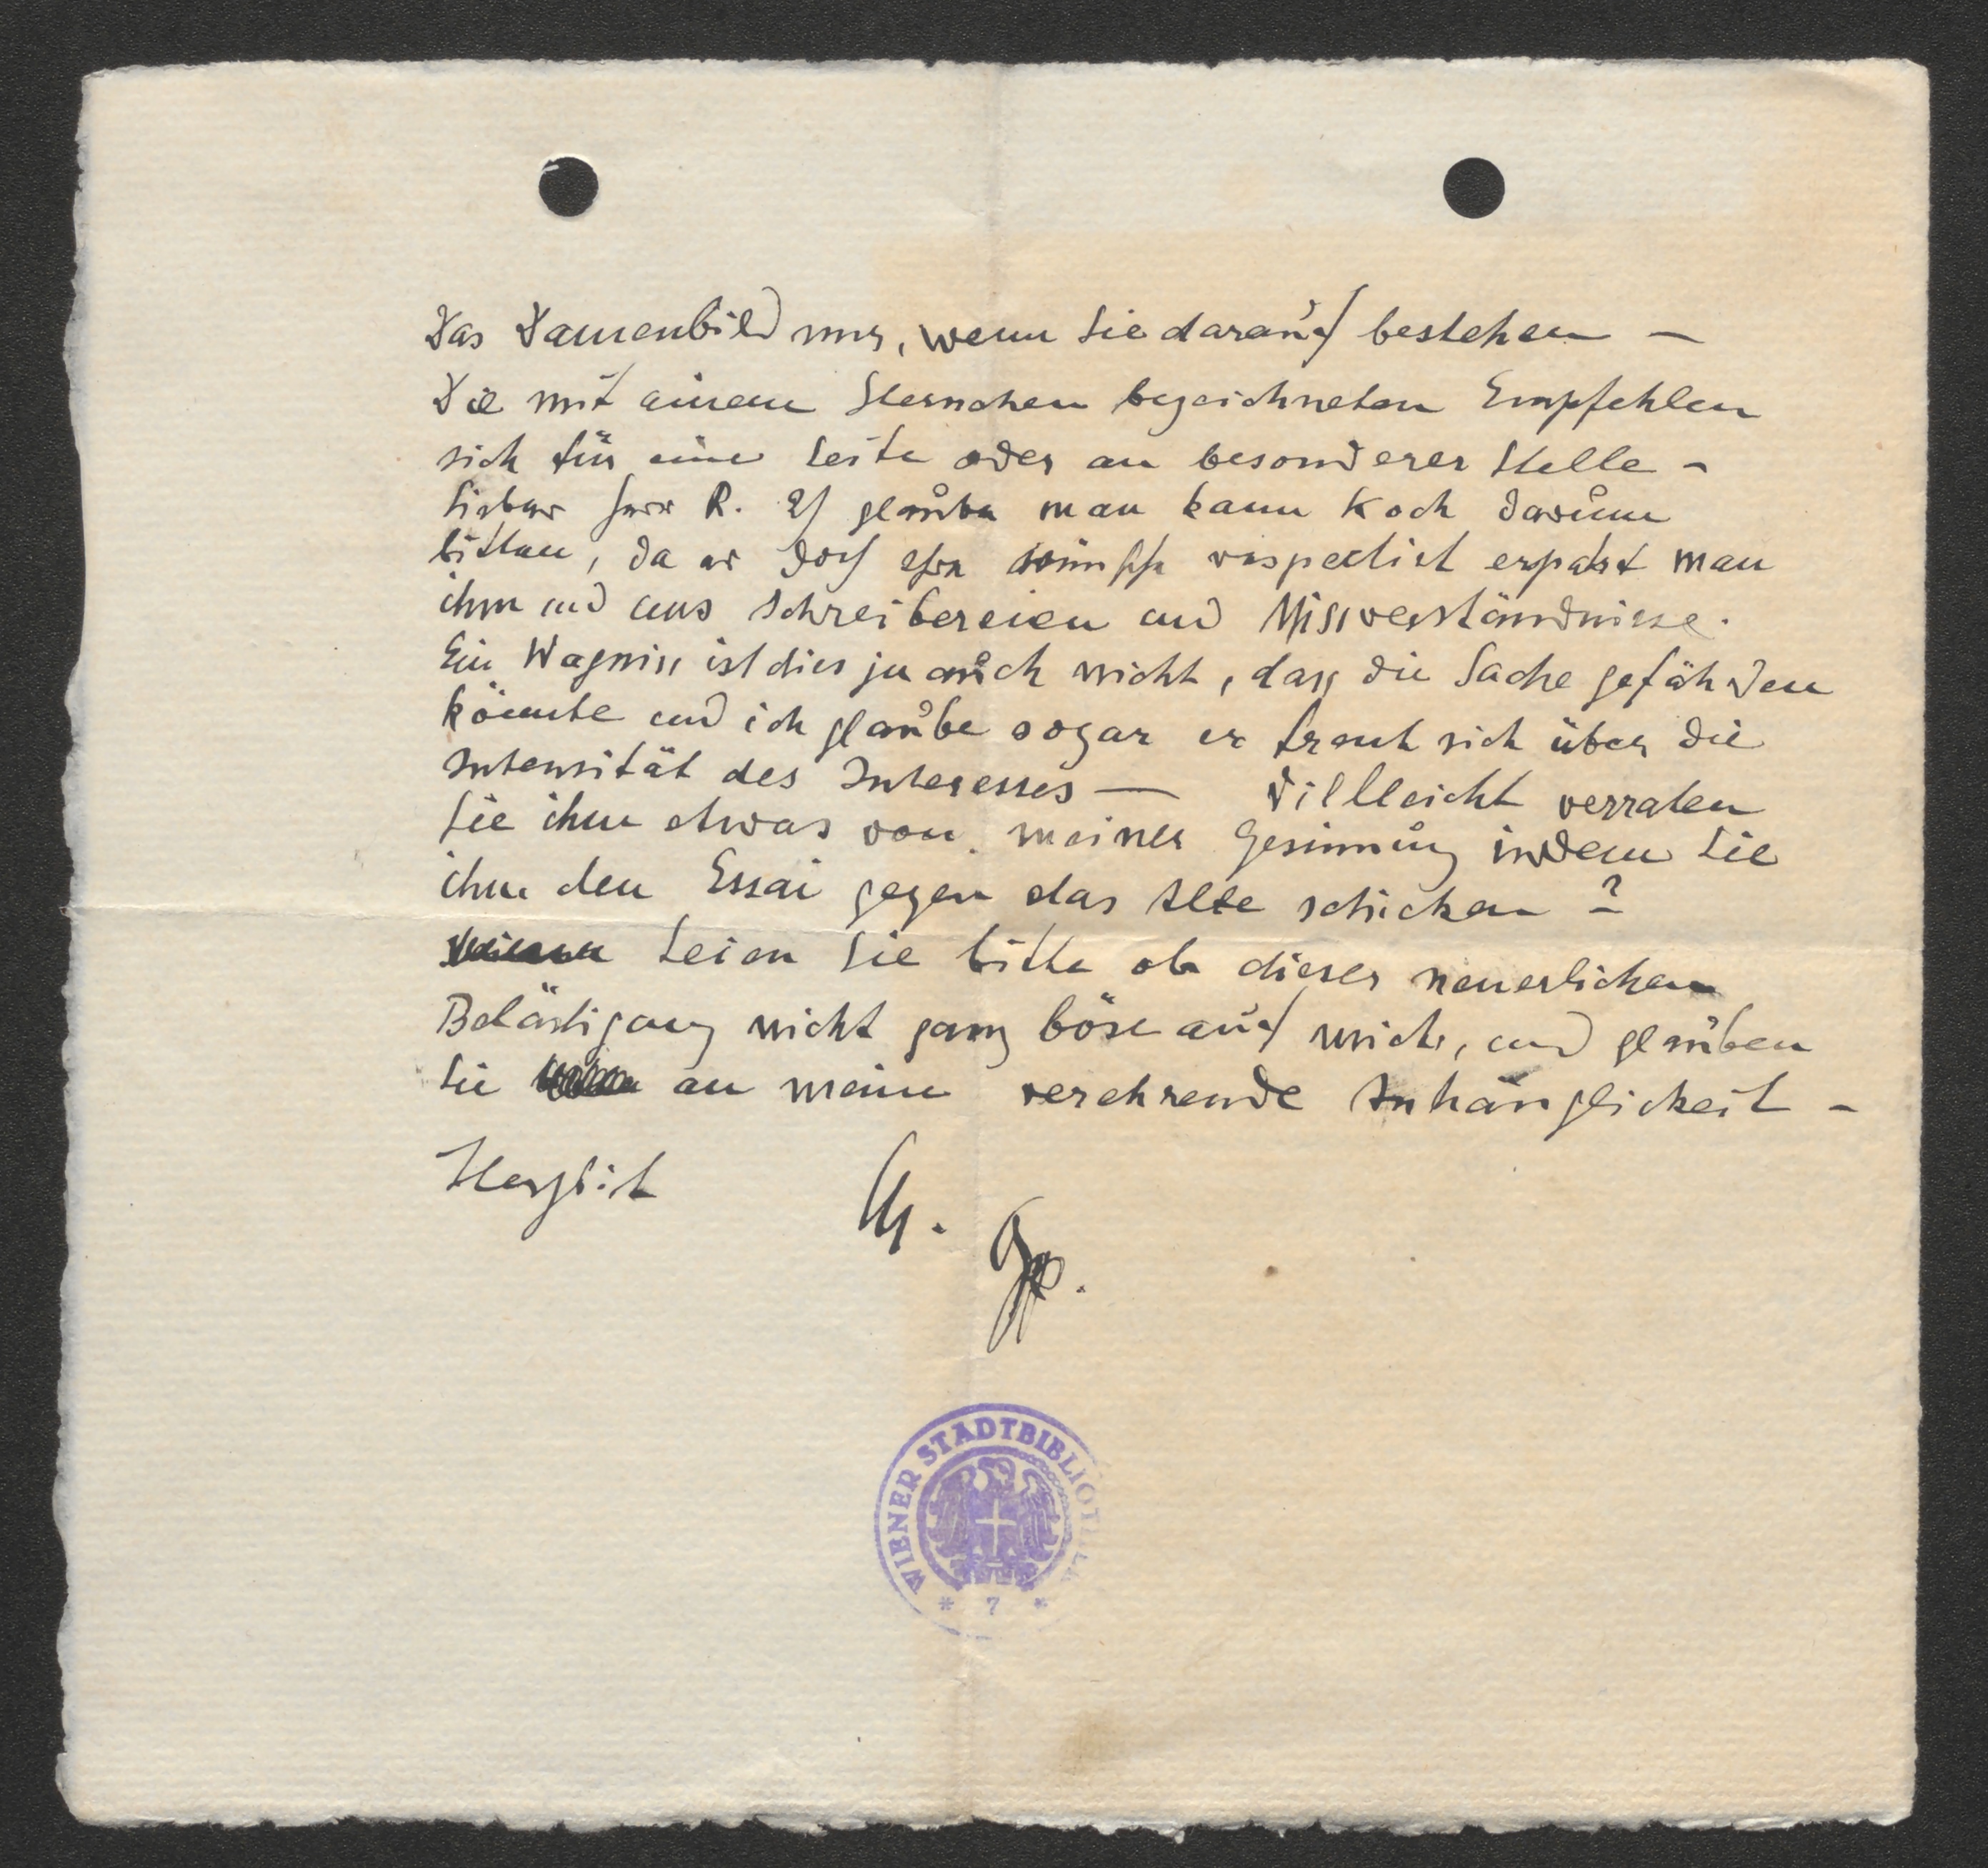 Das Damenbild nur, wenn Sie darauf bestehen —
Die mit einem Sternchen bezeichneten Empfehlen
sich für eine Seite oder an besonderer Stelle -
Lieber Herr R. Ich glaube man kann Koch darum
bitten, da er doch Ihre Wünsche respectiert erspahrt man
ihm und uns Schreibereien und Missverständnisse.
Ein Wagniss ist dies ja auch nicht, dass die Sache gefährden
könnte und ich glaube sogar er freut sich über die
Intensität des Interesses — Villleicht verraten
Sie ihm etwas von meiner Gesinnung indem Sie
ihm den Essai gegen das Alte schicken ?
Seien Sie bitte ob dieser neuerlichen
Belästigung nicht ganz böse auf mich, und glauben
Sie an meine verehrende Anhänglickeit -
Herzlich
Gp.
WIENER STADTBIBLIOTHEK
* 7 *